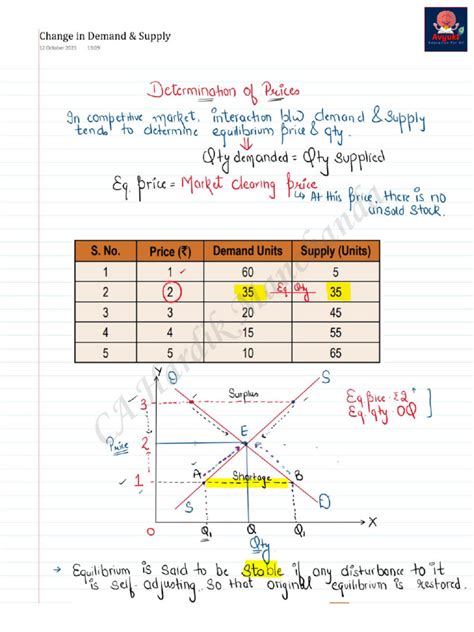 Avyukt
Change in Demand & Supply
12 October 2025 13:09
Determination of Prices
In competitive market, interaction b/w demand & Supply
tends to determine equilibrium price & qty.
Qty demanded = Qty Supplied
Eq. price = Market clearing price
At this price, there is no
unsold stock.
S. No. Price (₹) Demand Units Supply (Units)
1 1 60 5
2 2 35 Eq Qty 35
3 3 20 45
4 4 15 55
5 5 10 65
CA Hardik Manchanda
Y
D S
Surplus
3
Eq price = ₹2
Eq. qty = OQ
E
Price 2
A Shortage B
1
S D
O Q₁ Q Q₁ X
Qty
→ Equilibrium is said to be Stable if any disturbance to it
is self adjusting. So that original equilibrium is restored.